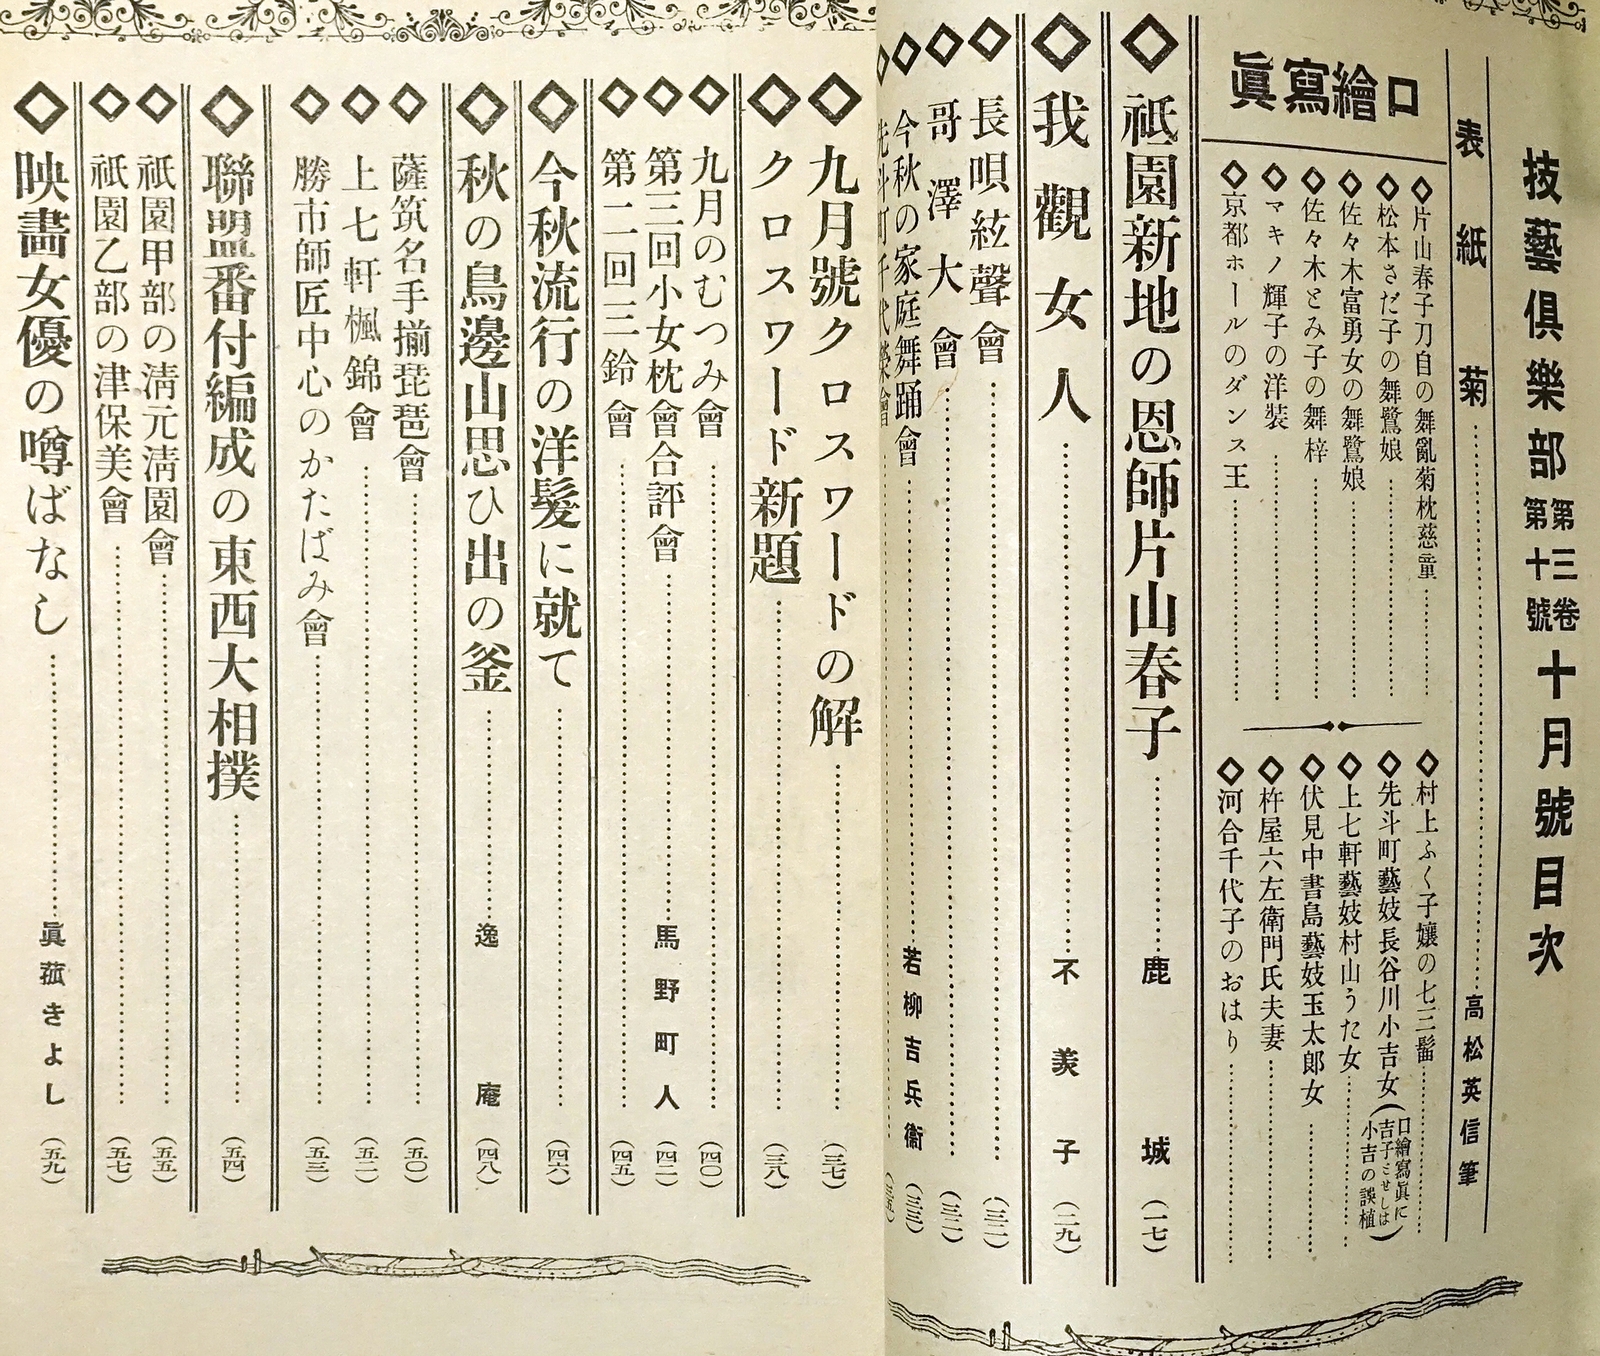 技藝俱樂部 第三卷 第十號 十月號目次
表紙 菊 高松英信筆
口繪寫眞
◇片山春子刀自の舞亂菊枕慈童
◇松本さだ子の舞鷺娘
◇佐々木富勇女の舞鷺娘
◇佐々木とみ子の舞梓
◇マキノ輝子の洋装
◇京都ホールのダンス王
◇村上ふく子孃の七三髷
◇先斗町藝妓長谷川小吉女(口繪寫眞に吉子とせしは小吉の誤植)
◇上七軒藝妓村山うた女
◇伏見中書島藝妓玉太郎女
◇杵屋六左衛門氏夫妻
◇河合千代子のおはり
◇祇園新地の恩師片山春子 鹿城 (一七)
◇我觀女人 不羨子 (二九)
◇長唄絃聲會 (三一)
◇哥澤大會 (三二)
◇今秋の家庭舞踊會 若柳吉兵衞 (三三)
◇先斗町千代榮會 (三五)
◇九月號クロスワードの解 (三七)
◇クロスワード新題 (三八)
◇九月のむつみ會 (四〇)
◇第三回小女枕會合評會 馬野町人 (四二)
◇第二回三鈴會 (四五)
◇今秋流行の洋髮に就て (四六)
◇秋の鳥邊山思ひ出の釜 逸庵 (四八)
◇薩筑名手揃琵琶會 (五〇)
◇上七軒楓錦會 (五二)
◇勝市師匠中心のかたばみ會 (五三)
◇聯盟番付編成の東西大相撲 (五四)
◇祇園甲部の淸元淸園會 (五五)
◇祇園乙部の津保美會 (五七)
◇映畵女優の噂ばなし 眞菰きよし (五九)